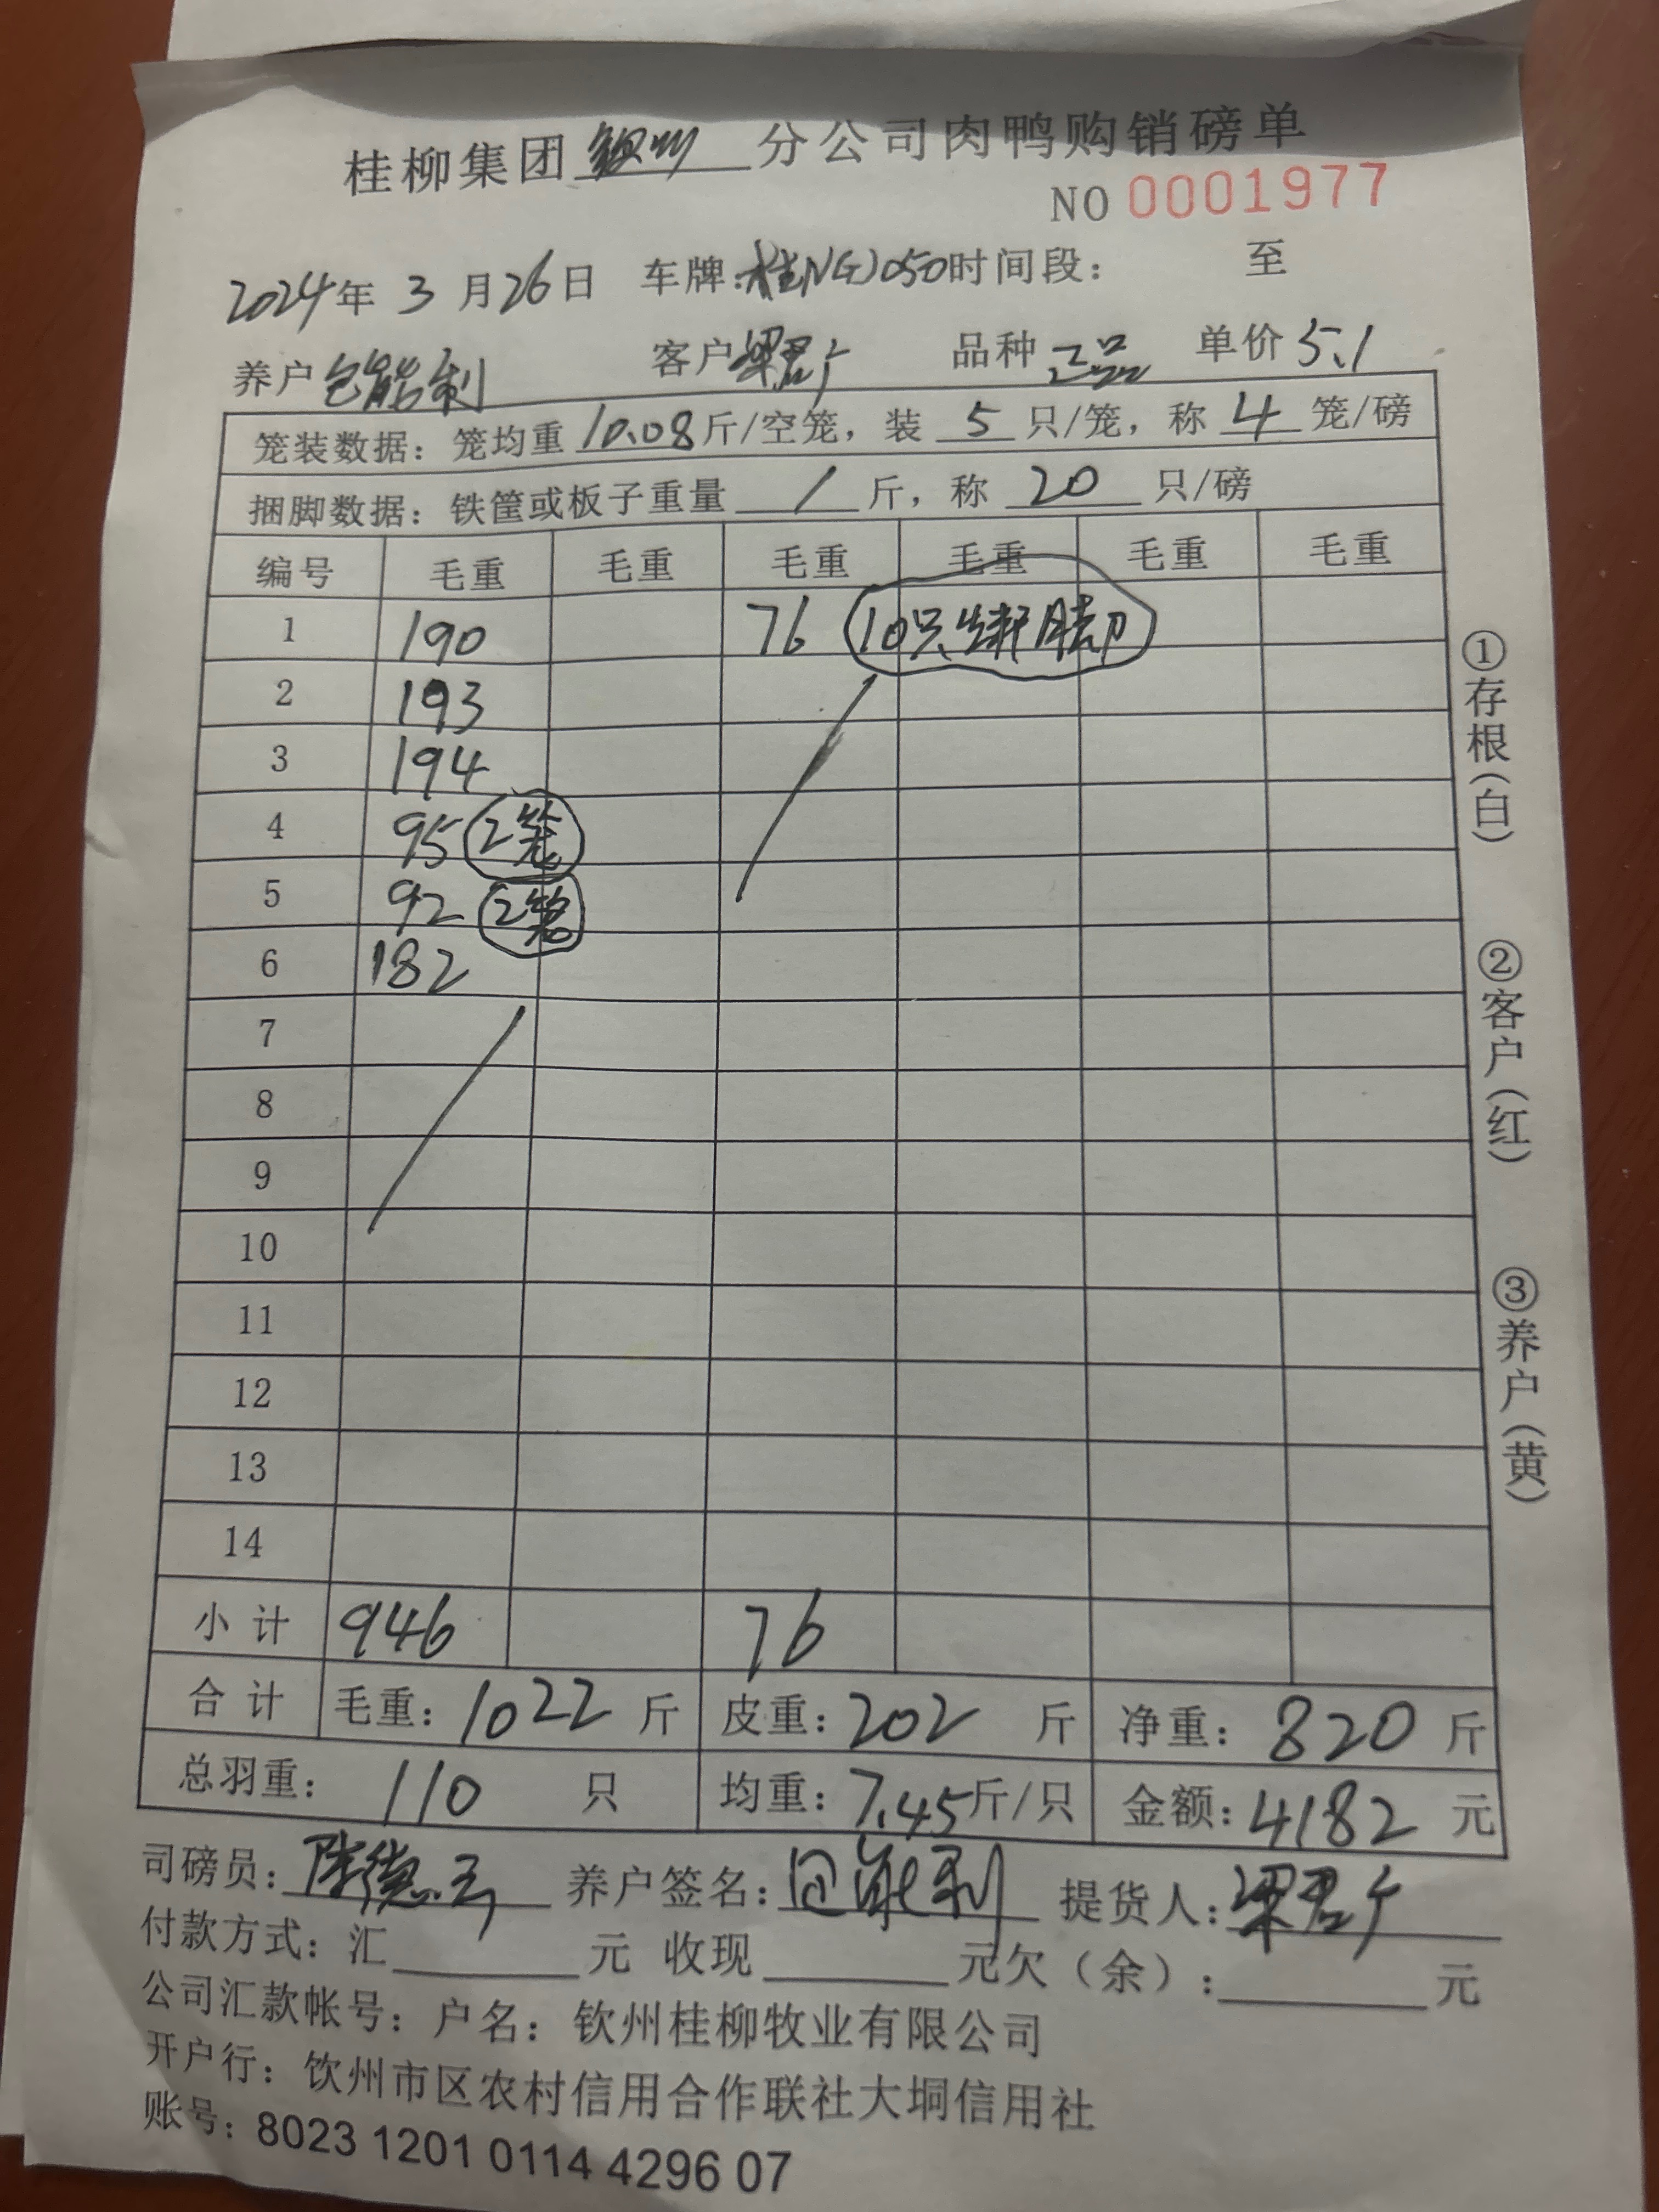 桂柳集团 钦州 分公司肉鸭购销磅单
NO 0001977
2024年 3 月 26 日 车牌: 桂NGJ050 时间段: 至
养户 包能利 客户 梁君 品种 正品 单价 5.1
笼装数据: 笼均重 10.08 斤/空笼, 装 5 只/笼, 称 4 笼/磅
捆脚数据: 铁筐或板子重量 / 斤, 称 20 只/磅
编号 毛重 毛重 毛重 毛重 毛重 毛重
1 190 76 10只 脚
2 193
3 194
4 95 2笼
5 92 2笼
6 182
7
8
9
10
11
12
13
14
小计 946 76
合计 毛重: 1022 斤 皮重: 202 斤 净重: 820 斤
总羽重: 110 只 均重: 7.45 斤/只 金额: 4182 元
司磅员: 陈德 养户签名: 包能利 提货人: 梁君
付款方式: 汇 元 收现 元欠(余): 元
公司汇款帐号: 户名: 钦州桂柳牧业有限公司
开户行: 钦州市区农村信用合作联社大垌信用社
账号: 8023 1201 0114 4296 07
①存根(白)
②客户(红)
③养户(黄)